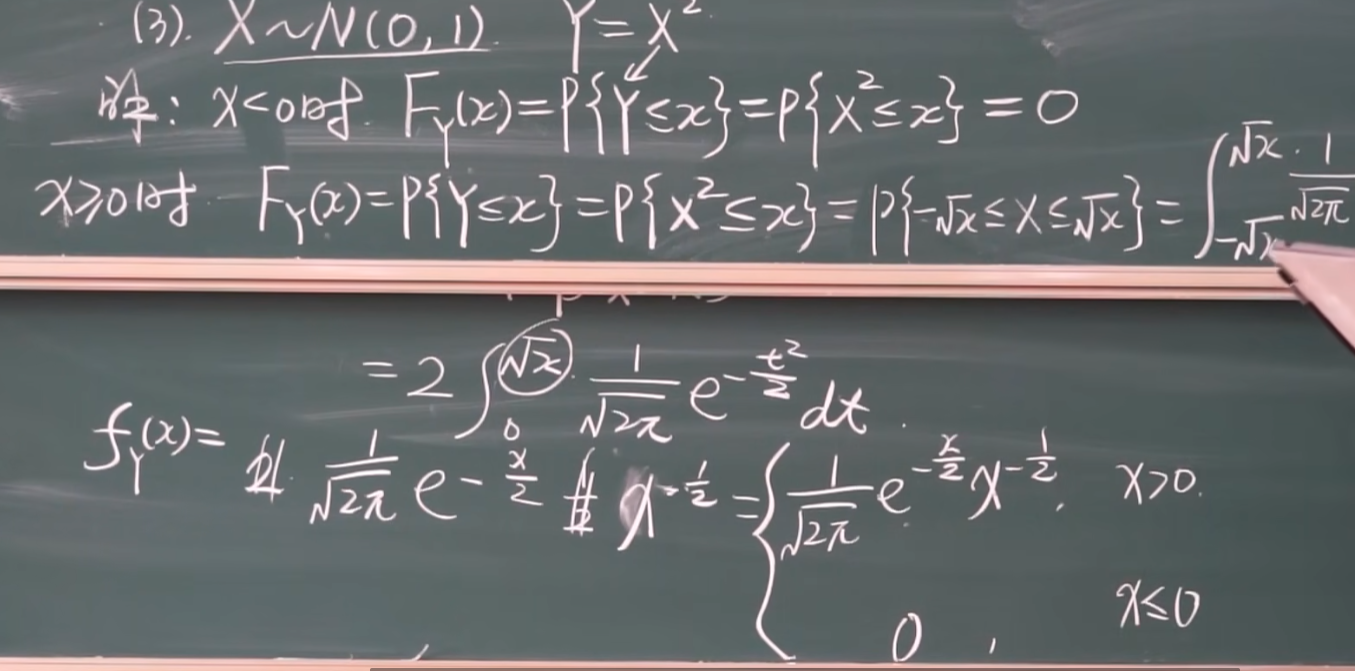 (3). X~N(0,1) Y=X²
解: x<0时. F_Y(x)=P{Y≤x}=P{X²≤x}=0
x≥0时 F_Y(x)=P{Y≤x}=P{X²≤x}=P{-√x≤X≤√x}=∫_{-√x}^{√x} 1/√2π
=2∫_0^{√x} 1/√2π e^{-t²/2} dt.
f_Y(x)= 2 · 1/√2π e^{-x/2} 1/2 x^{-1/2} = { 1/√2π e^{-x/2} x^{-1/2}, x>0.
0, x≤0